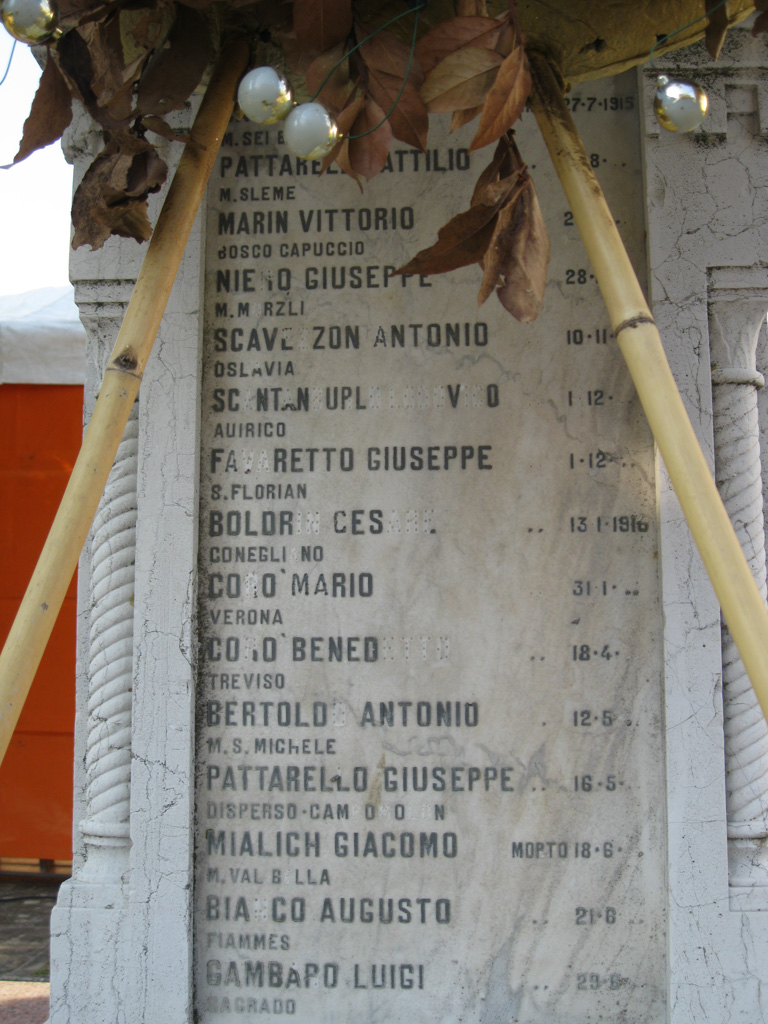 27·7·1915
M. SEI
PATTARELLO ATTILIO .. 8· ..
M. SLEME
MARIN VITTORIO
BOSCO CAPUCCIO
GIUSEPPE 28·
M. MRZLI
SCAVEZZON ANTONIO 10·11·
OSLAVIA
1·12·
AUIRICO
FAVARETTO GIUSEPPE 1·12· ..
S. FLORIAN
BOLDRIN CESARE. .. 13·1·1916
CONEGLIANO
CORO' MARIO 31·1· ..
VERONA
CORO' BENEDETTO .. 18·4·
TREVISO
BERTOLDO ANTONIO . 12·5 ..
M. S. MICHELE
PATTARELLO GIUSEPPE .. 16·5· ..
DISPERSO·CAMPOROVON
MIALICH GIACOMO MORTO 18·6·
M. VAL BELLA
BIANCO AUGUSTO .. 21·6 ..
FIAMMES
GAMBARO LUIGI .. 29·6· ..
SAGRADO